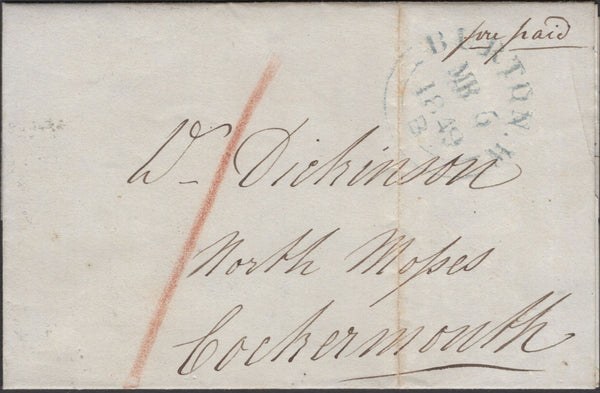 pre paid
BURTON·W
MR 6
1849
B
Wm Dickinson
North Moſses
Cockermouth